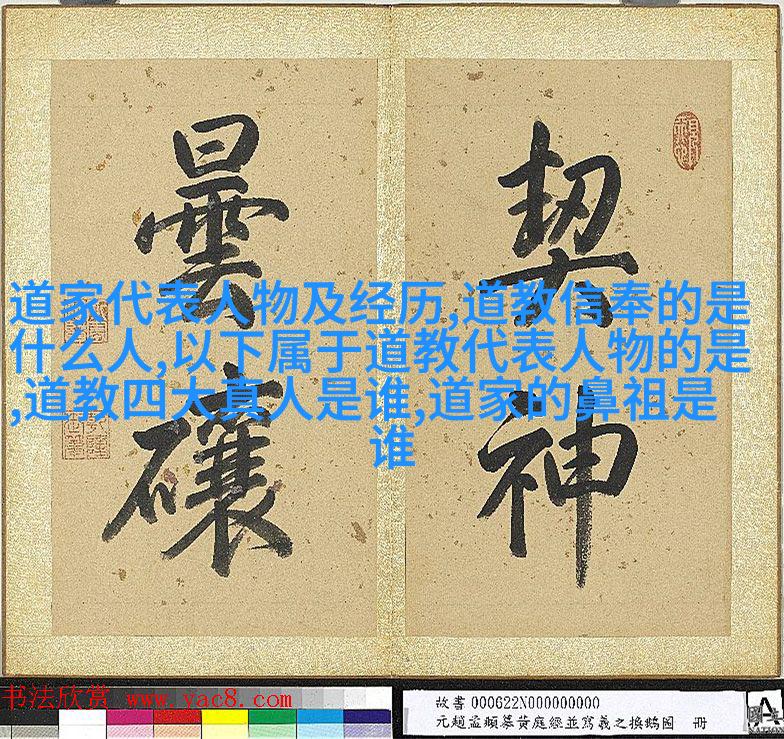 契神
曇
道家代表人物及经历,道教信奉的是
什么人,以下属于道教代表人物的是
,道教四大真人是谁,道家的鼻祖是
谁
书法欣赏 www.yac8.com
故書000622N000000000
元趙孟頫摹黄庭經並寫羲之換鵝圖 冊